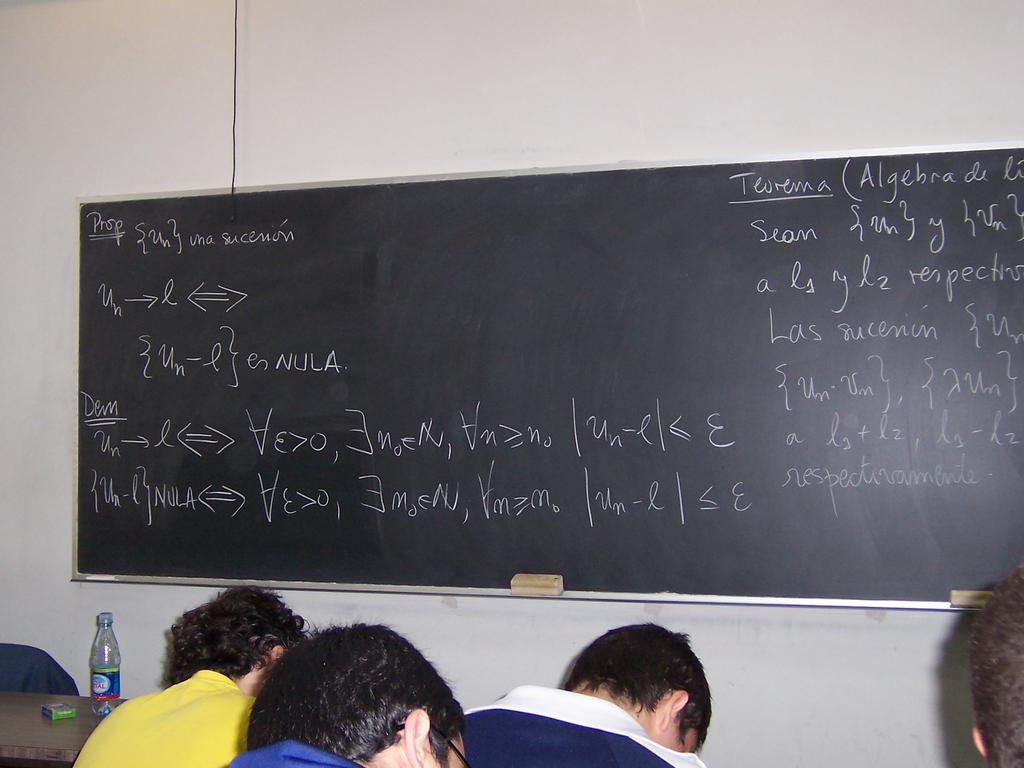 Prop {un} una sucesión
un → l ⟺
{un - l} es NULA.
Dem
un → l ⟺ ∀ε>0, ∃n₀∈ℕ, ∀n≥n₀ |un - l| ≤ ε
{un - l} NULA ⟺ ∀ε>0, ∃n₀∈ℕ, ∀n≥n₀ |un - l| ≤ ε
Teorema (Algebra de lí
Sean {un} y {vn}
a l₁ y l₂ respectiv
Las sucesión {un
{un · vn}, {λun}
a l₁ + l₂, l₁ - l₂
respectivamente.